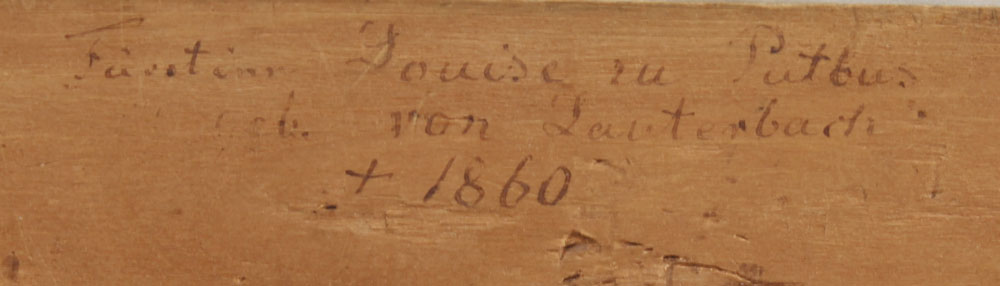 Fürstinn Louise zu Putbus
geb. von Lauterbach
+ 1860